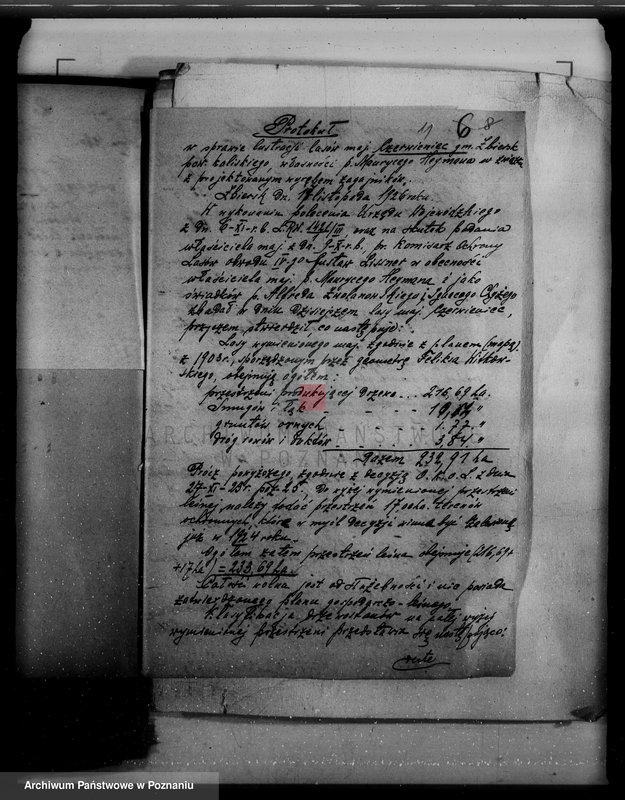 Protokuł
6 8
w sprawie lustracji lasów maj. Czerwieniec gm. Zbiersk
pow. kaliskiego, własności p. Maurycego Heymana w związku
z projektowanym wyrębem zagajników.
Zbiersk dn. listopada 1926 roku.
W wykonaniu polecenia Urzędu Wojewódzkiego
z dn. 6-XI-r.b. L. oraz na skutek podania
właściciela maj. z dn. 9-X-r.b. pr. Komisarz Ochrony
Lasów obwodu IV-go Gustaw Lissner w obecności
właściciela maj. p. Maurycego Heymana i jako
świadków p. Alfreda i Ignacego
zbadał w dniu dzisiejszem lasy maj. Czerwieniec,
przyczem stwierdził co następuje:
Lasy wymienionego maj. zgodnie z planem (mapą)
z 1903 r. sporządzonym przez geometrę Feliksa
skiego, obejmują ogółem:
przestrzeni produkującej drzewo ... 216,69 ha.
Smugów i łąk - - - "
gruntów ornych - - - 1.77 "
dróg rowów i - - - 3,84 "
Razem 232,91 ha
Prócz powyższego, zgodnie z decyzją O.K.O.L. z dnia
27-XI-23 r. poz. 20, do wyżej wymienionej przestrzeni
leśnej należy dodać przestrzeń 17.00 ha.
ochronnych, która w myśl decyzji winna być zalesioną
już w 1924 roku.
Ogółem zatem przestrzeń leśna obejmuje (216,69 +
+ 17 ha) = 233,69 ha.
Całość wolna jest od służebności i nie posiada
zatwierdzonego planu gospodarczo-leśnego.
Klasyfikacja drzewostanów na całej wyżej
wymienionej przestrzeni przedstawia się następująco:
verte
ARCHIWUM PAŃSTWOWE
W POZNANIU
Archiwum Państwowe w Poznaniu